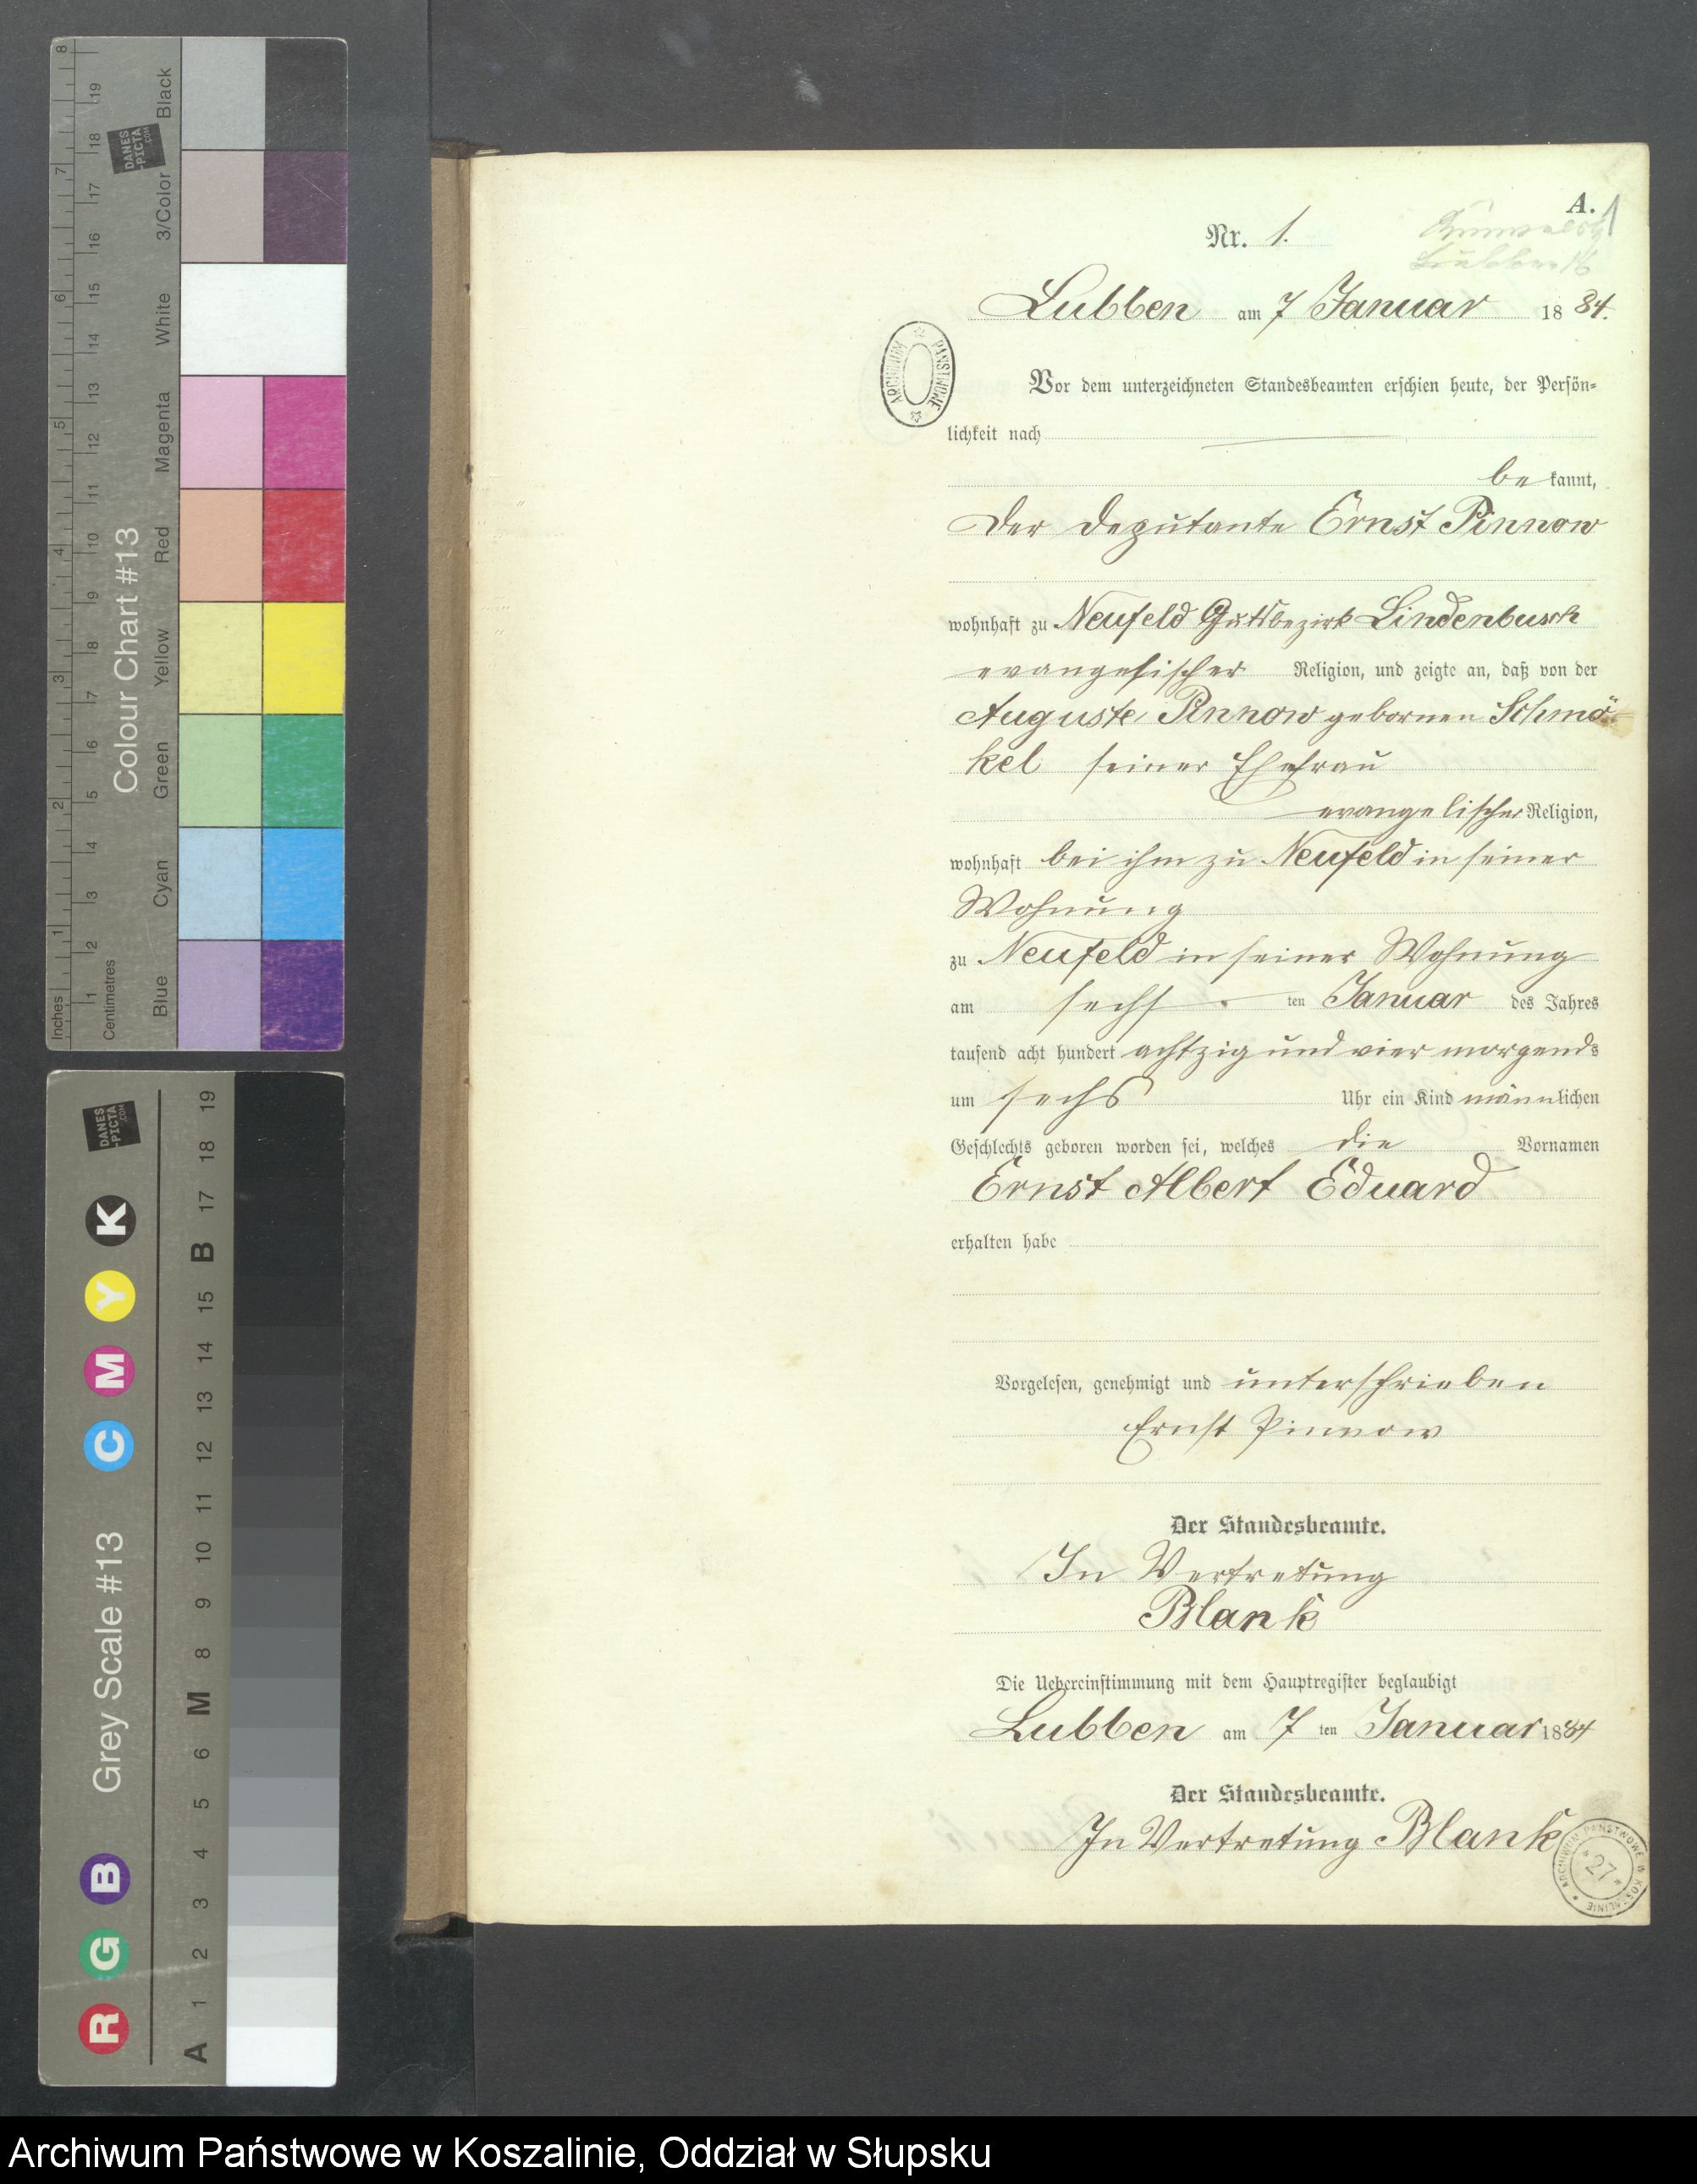 8
7
6
5
4
3
2
1
Inches
19
18
17
16
15
14
13
12
11
10
9
8
7
6
5
4
3
2
1
Centimetres
DANES
-PICTA
.COM
Colour Chart #13
Black
3/Color
White
Magenta
Red
Yellow
Green
Cyan
Blue
DANES
-PICTA
.COM
K
Y
M
C
Grey Scale #13
B
G
R
19
18
17
B
15
14
13
12
11
10
9
8
M
6
5
4
3
2
1
A
A. 1
Nr. 1.
Lubben am 7 Januar 1884.
ARCHIWUM PAŃSTWOWE
Vor dem unterzeichneten Standesbeamten erschien heute, der Persön-
lichkeit nach
be kannt,
der Deputante Ernst Pinnow
wohnhaft zu Neufeld Gutsbezirk Lindenbusch
evangelischer Religion, und zeigte an, daß von der
Auguste Pinnow gebornen Schmö-
kel seiner Ehefrau
evangelischer Religion,
wohnhaft bei ihm zu Neufeld in seiner
Wohnung
zu Neufeld in seiner Wohnung
am sechs ten Januar des Jahres
tausend acht hundert achtzig und vier morgends
um sechs Uhr ein Kind männlichen
Geschlechts geboren worden sei, welches die Vornamen
Ernst Albert Eduard
erhalten habe
Vorgelesen, genehmigt und unterschrieben
Ernst Pinnow
Der Standesbeamte.
In Vertretung
Blank
Die Uebereinstimmung mit dem Hauptregister beglaubigt
Lubben am 7 ten Januar 1884
Der Standesbeamte.
In Vertretung Blank
ARCHIWUM PAŃSTWOWE W KOSZALINIE
* 27 *
Archiwum Państwowe w Koszalinie, Oddział w Słupsku